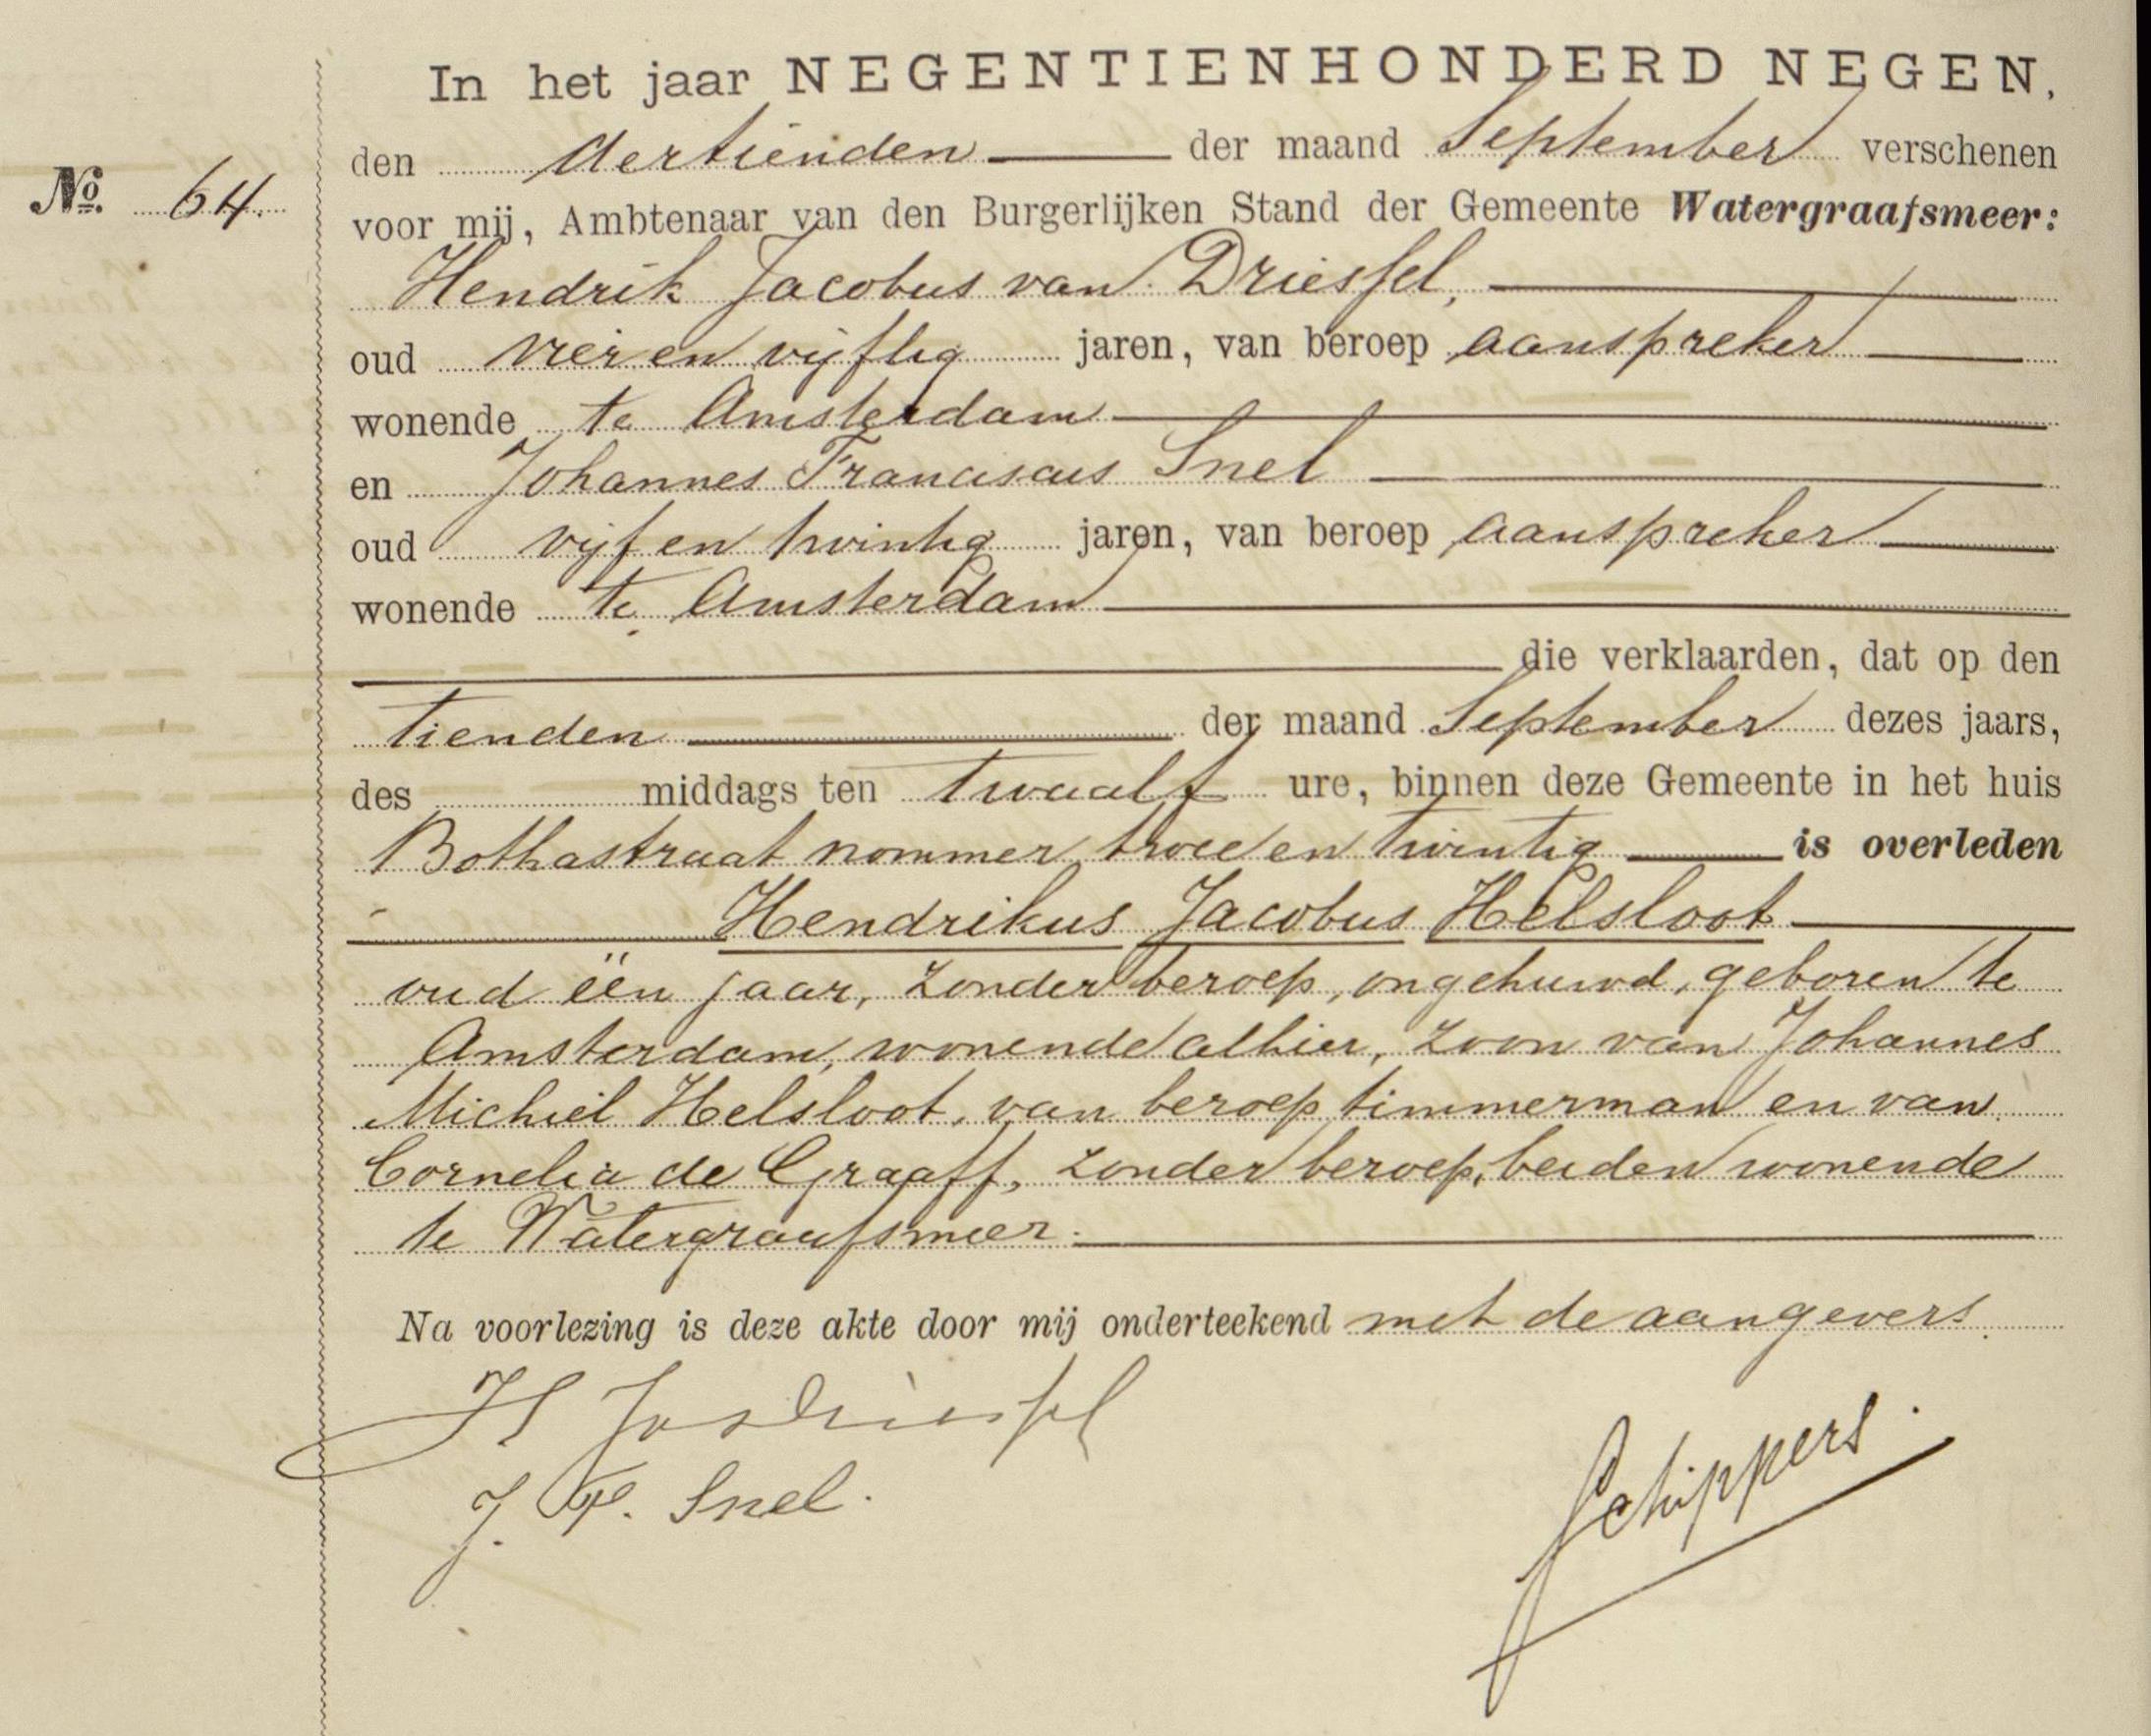 In het jaar NEGENTIENHONDERD NEGEN,
den dertienden der maand September verschenen
No. 64. voor mij, Ambtenaar van den Burgerlijken Stand der Gemeente Watergraafsmeer:
Hendrik Jacobus van Driessel,
oud vier en vijftig jaren, van beroep aanspreker
wonende te Amsterdam
en Johannes Franciscus Snel
oud vijf en twintig jaren, van beroep aanspreker
wonende te Amsterdam
die verklaarden, dat op den
tienden der maand September dezes jaars,
des middags ten twaalf ure, binnen deze Gemeente in het huis
Bothastraat nommer twee en twintig is overleden
Hendrikus Jacobus Helsloot
oud één jaar, zonder beroep, ongehuwd, geboren te
Amsterdam, wonende alhier, zoon van Johannes
Michiel Helsloot, van beroep timmerman en van
Cornelia de Graaff, zonder beroep, beiden wonende
te Watergraafsmeer.
Na voorlezing is deze akte door mij onderteekend met de aangevers.
J. F. Snel.
Schippers.